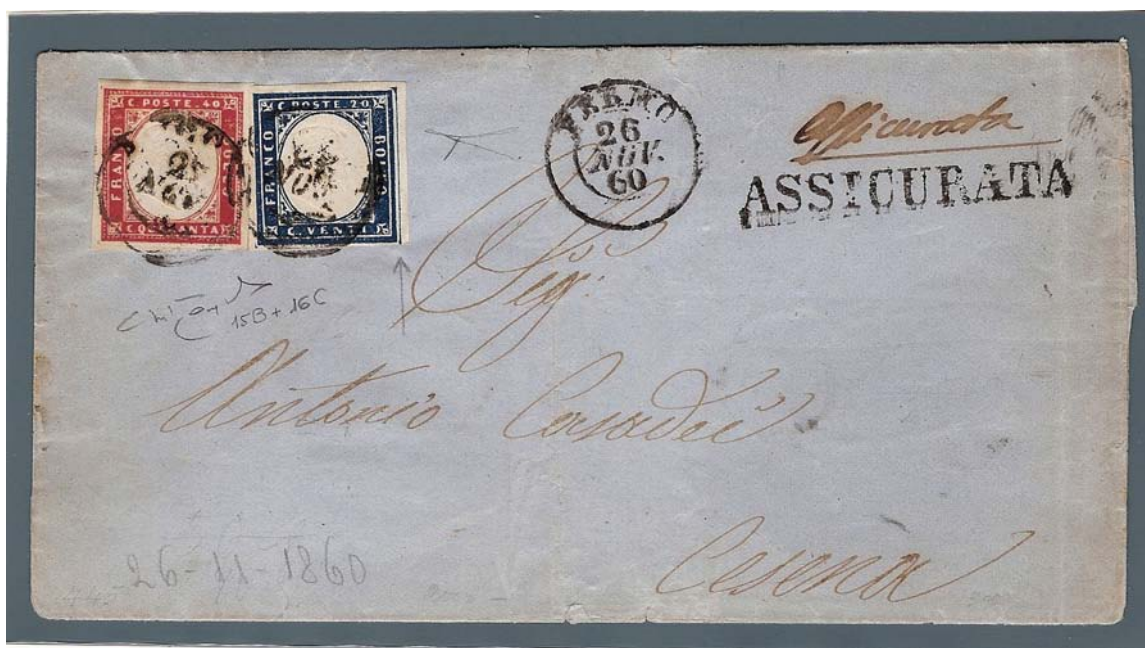 C POSTE. 40
FRANCO
C QUARANTA
C POSTE. 20
FRANCO
C. 20
C. VENTI
FERMO
26
NOV.
60
Assicurata
ASSICURATA
Sigr.
15B + 16C
Antonio Casadei
Cesena
26-11-1860